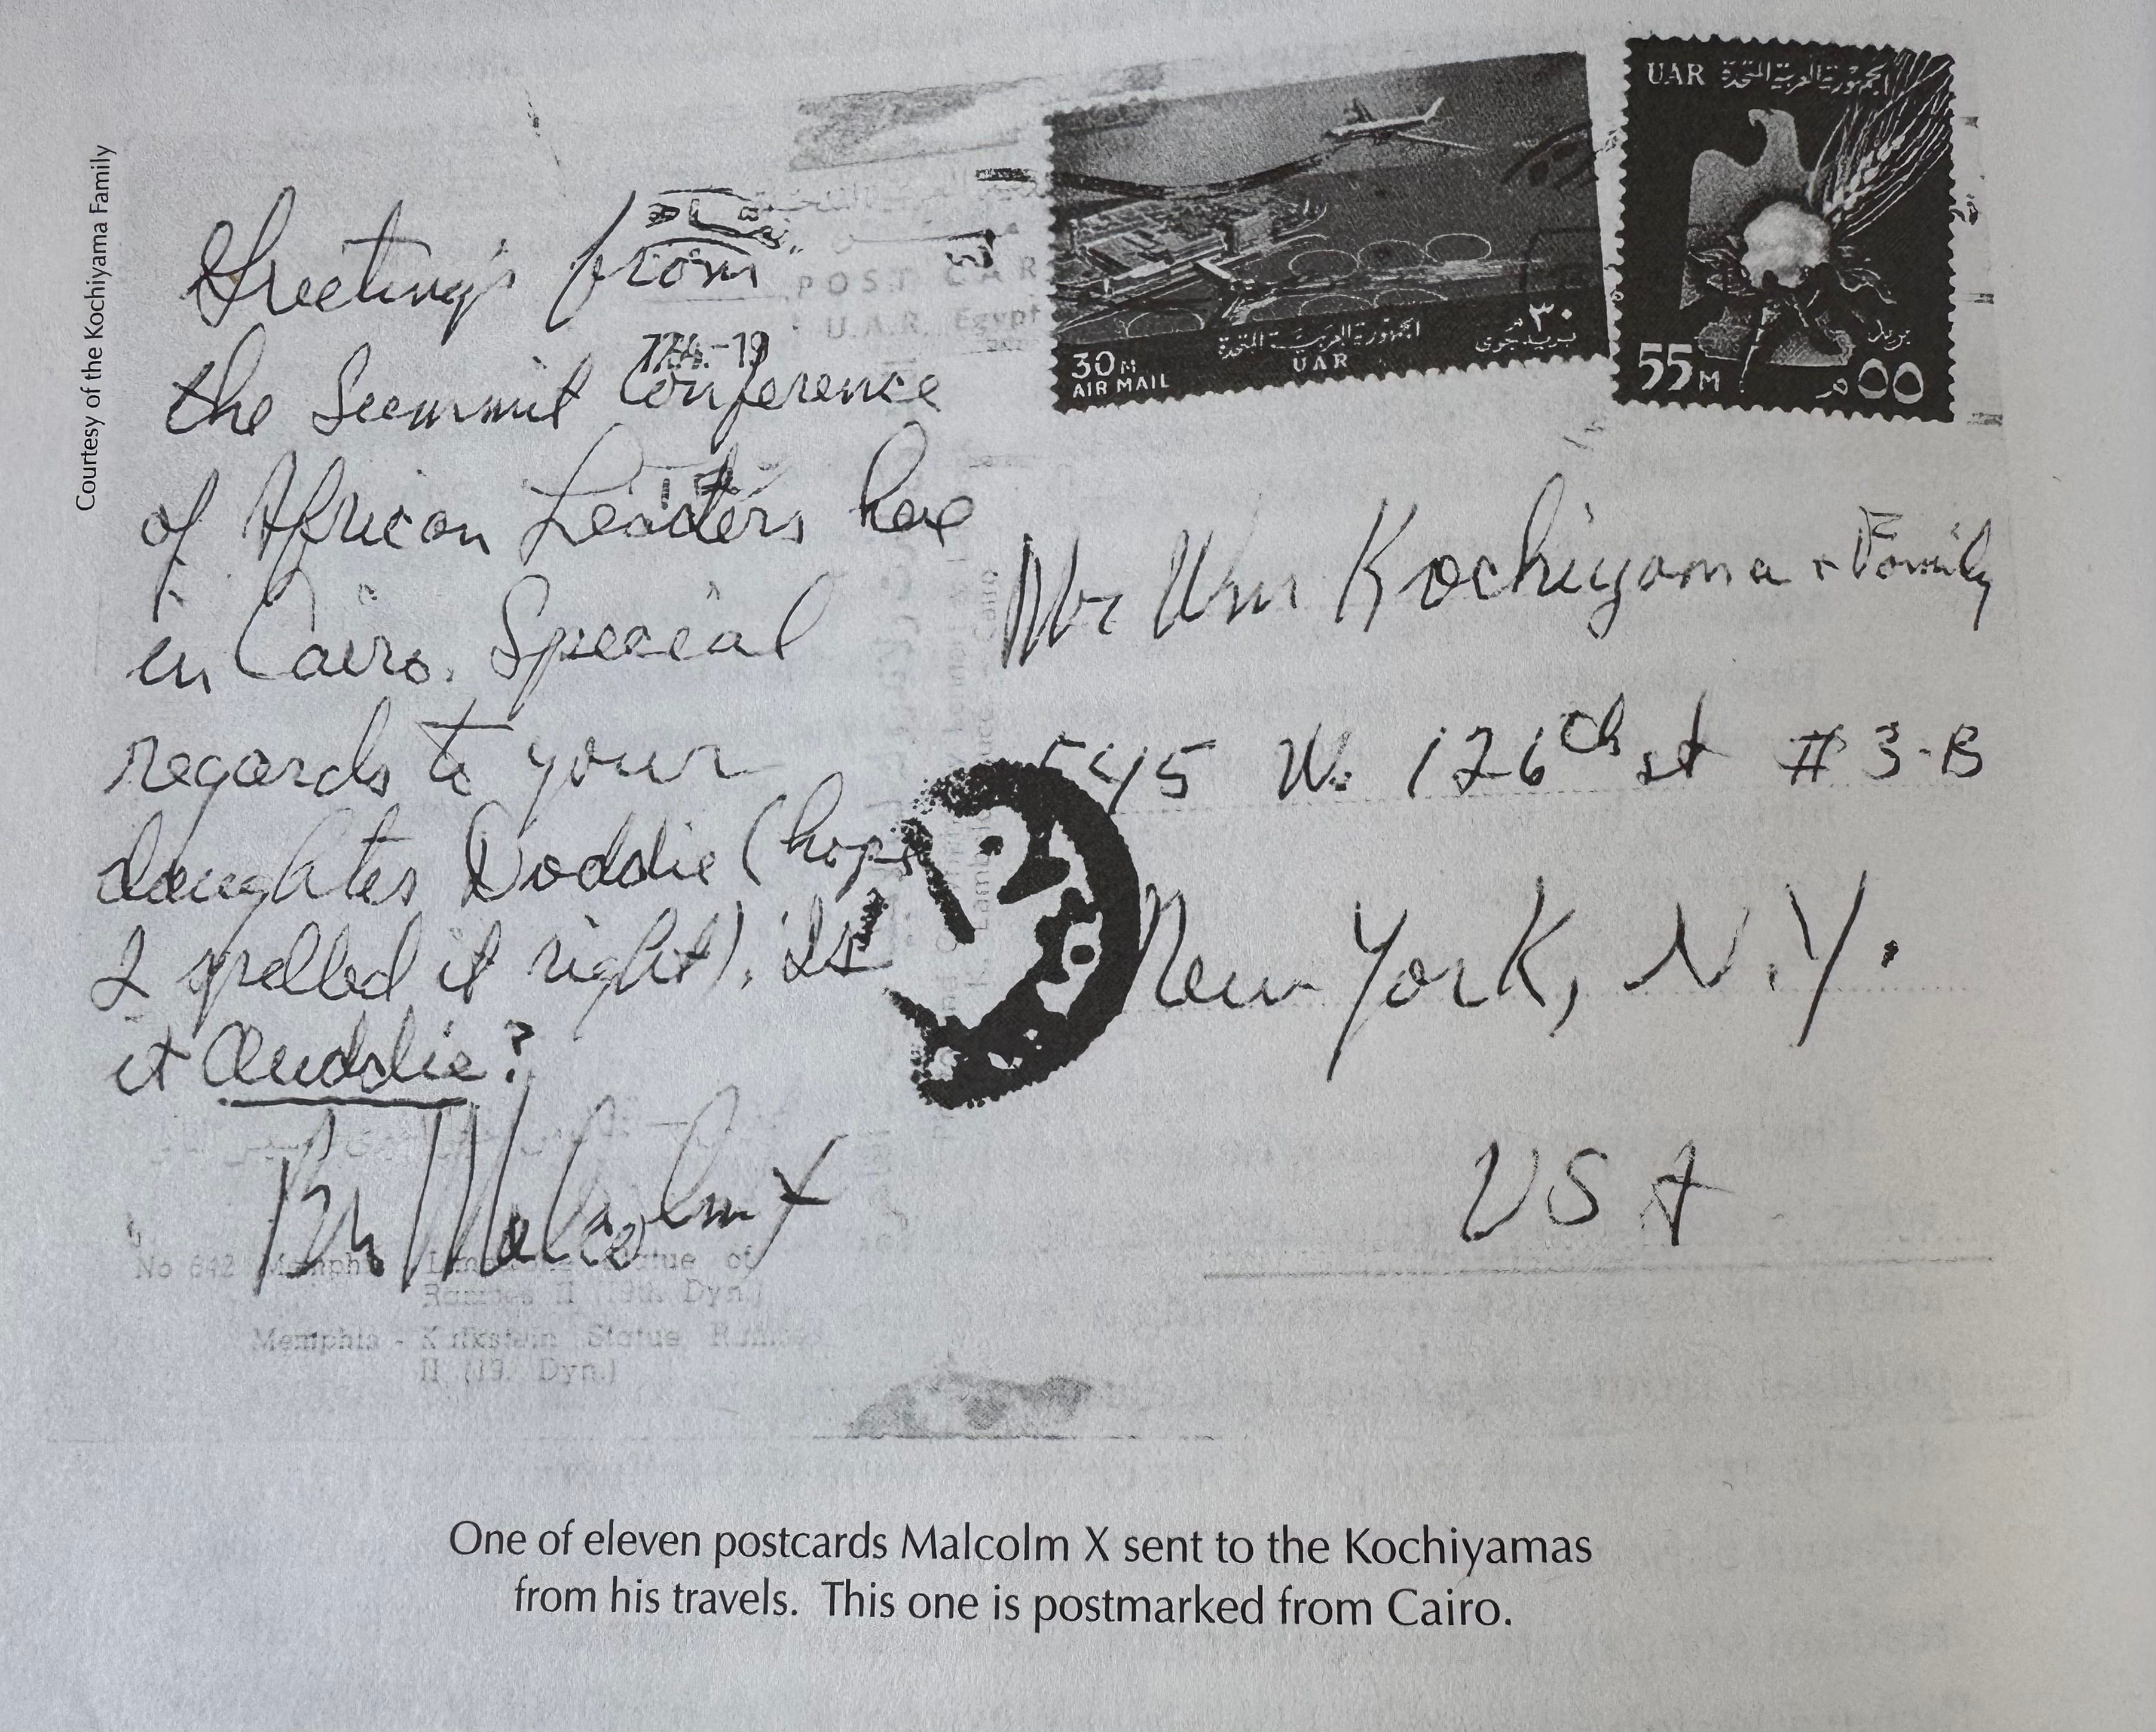 Courtesy of the Kochiyama Family
Greetings from
the Summit Conference
of African Leaders here
in Cairo. Special
regards to your
daughter Doddie (hope
I spelled it right). Is
it Auddie?
Bro Malcolm X
POST CAR
U.A.R. Egypt
30 M
AIR MAIL
الجمهورية العربية المتحدة
UAR
٣٠ م
بريد جوى
UAR الجمهورية العربية المتحدة
55 M
بريد
٥٥ م
Mr Wm Kochiyama + Family
545 W. 126th st #3-B
New York, N.Y.
USA
No 842 Memphis Statue of
II (19th Dyn.)
Memphis - Statue
II (19. Dyn.)
One of eleven postcards Malcolm X sent to the Kochiyamas
from his travels. This one is postmarked from Cairo.